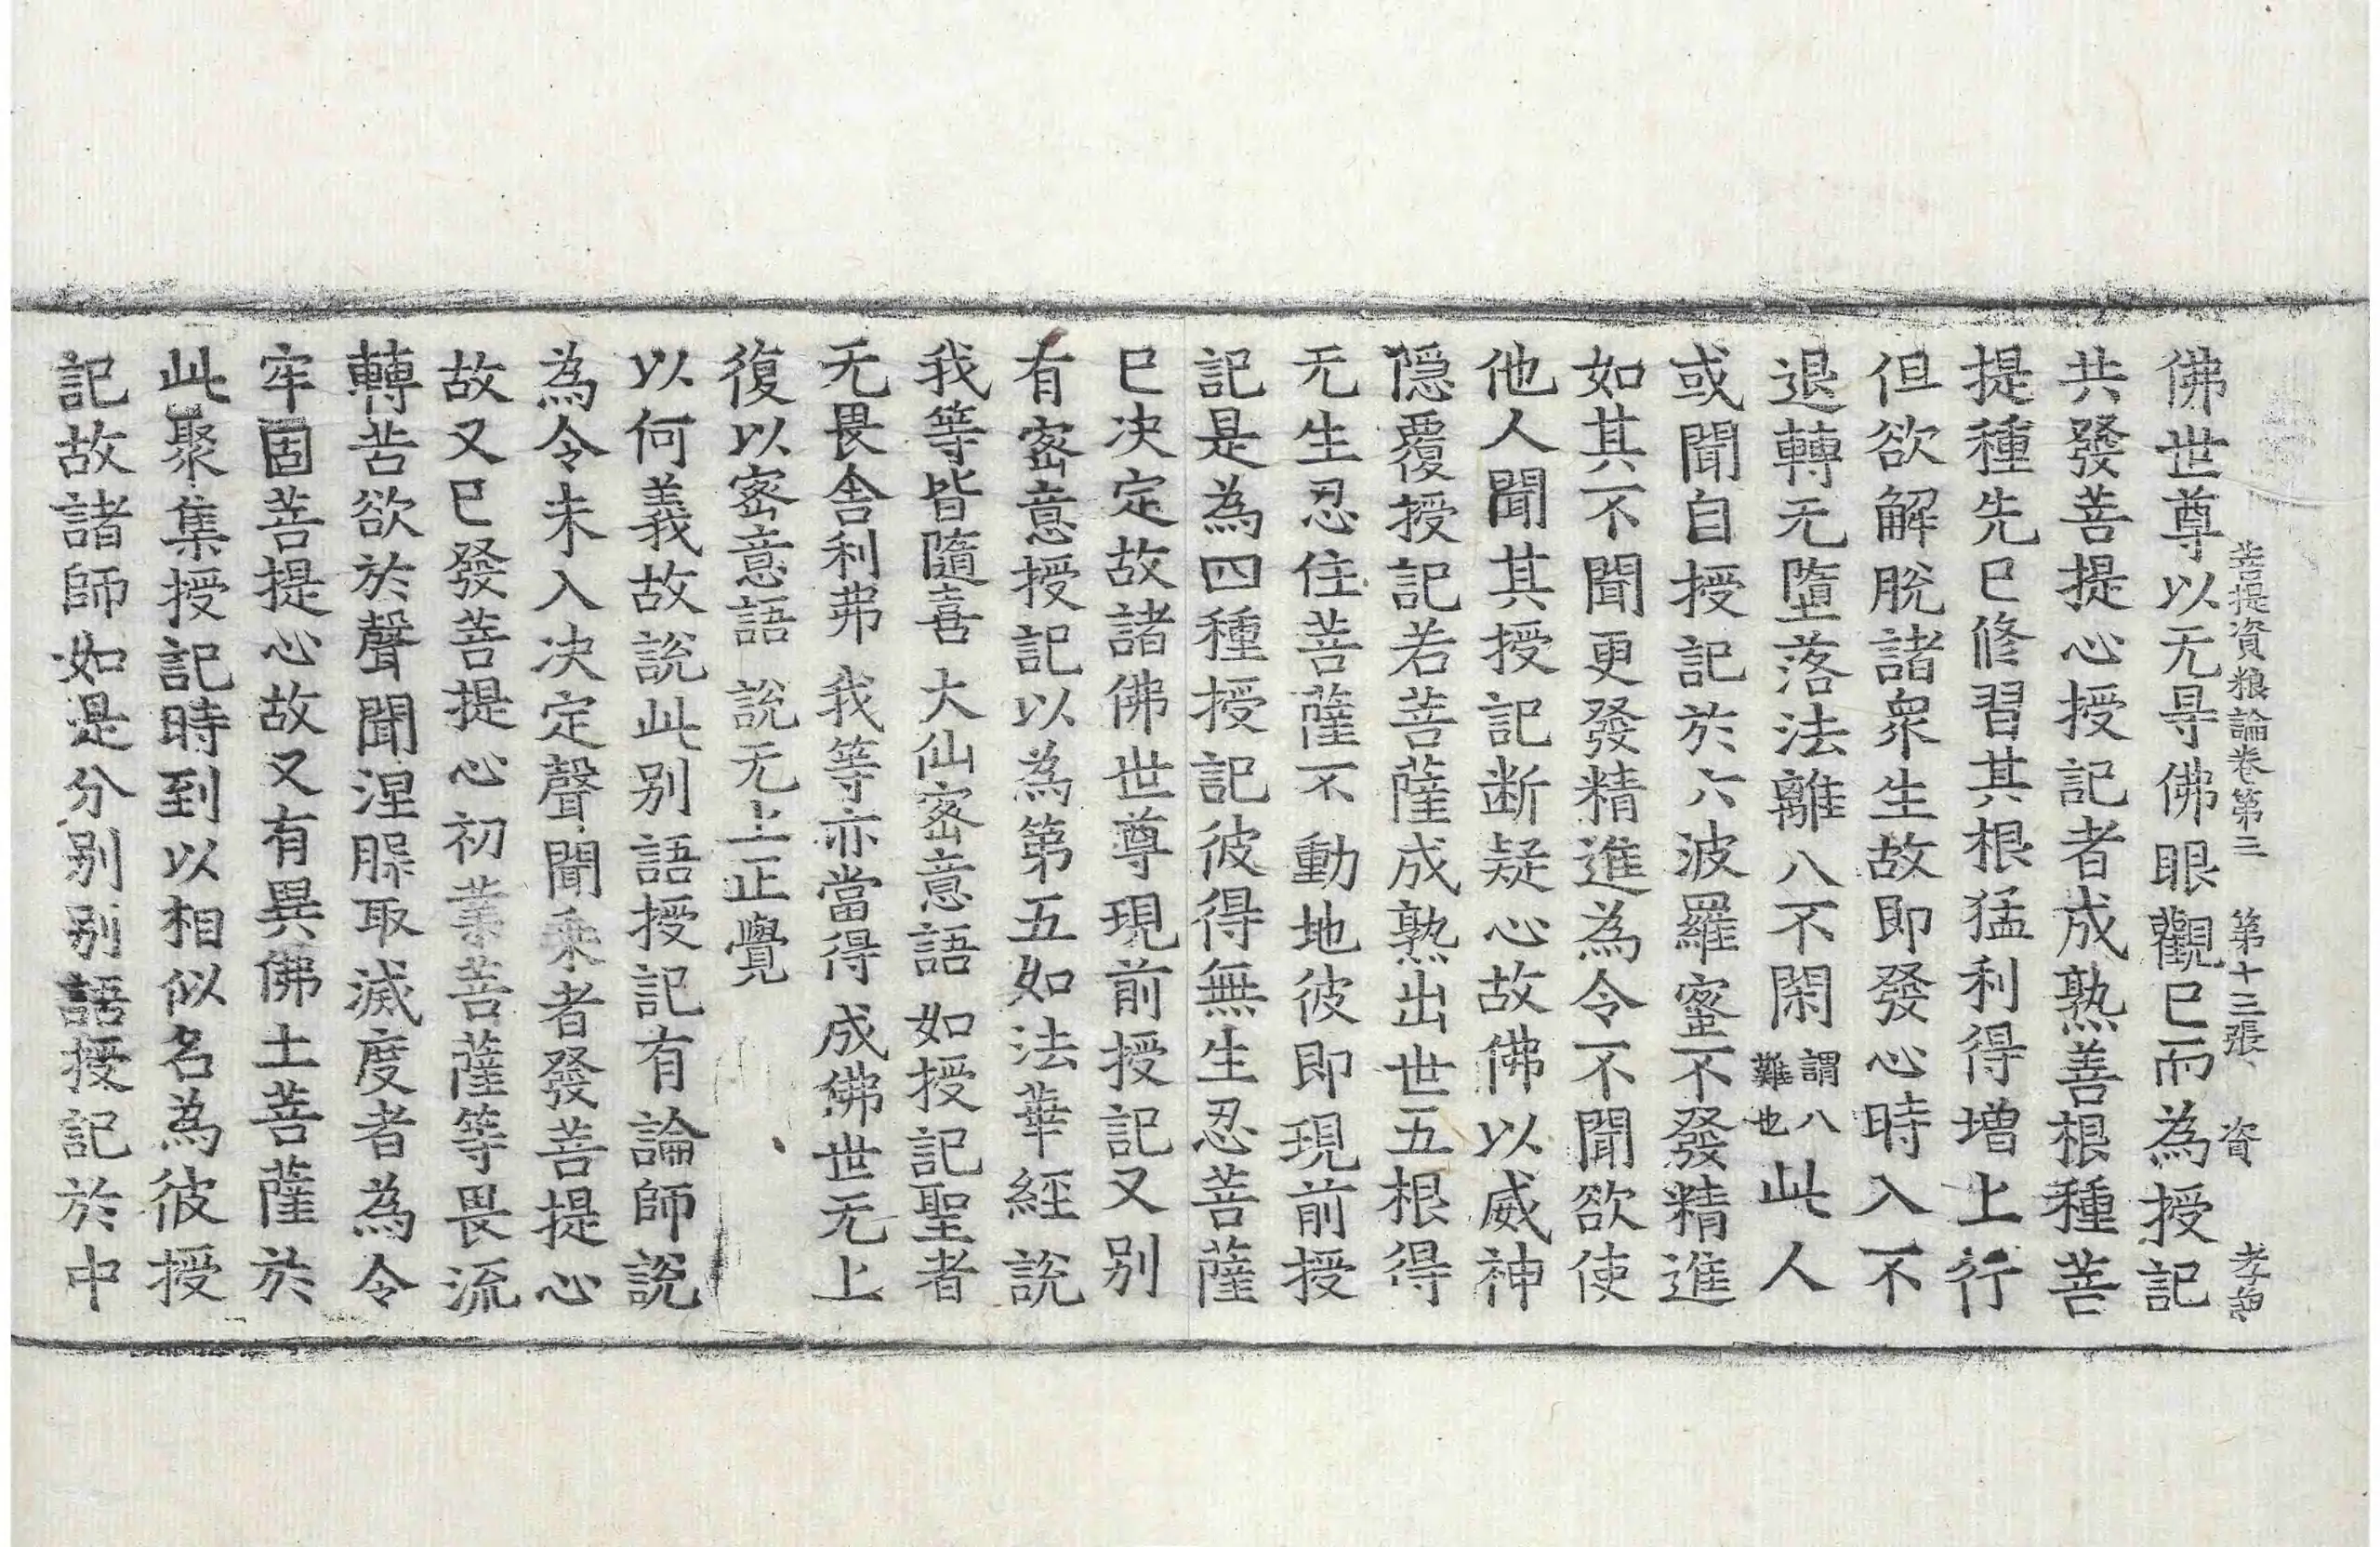 菩提資粮論卷第三　第十三張　資　孝
佛世尊以无㝵佛眼觀已而為授記
共發菩提心授記者成熟善根種菩
提種先已修習其根猛利得增上行
但欲解脫諸衆生故即發心時入不
退轉无墮落法離八不閑謂八難也此人
或聞自授記於六波羅蜜不發精進
如其不聞更發精進為令不聞欲使
他人聞其授記断疑心故佛以威神
隱覆授記若菩薩成熟出世五根得
无生忍住菩薩不動地彼即現前授
記是為四種授記彼得無生忍菩薩
已决定故諸佛世尊現前授記又別
有密意授記以為第五如法華經說
我等皆隨喜　大仙密意語　如授記聖者
无畏舍利弗　我等亦當得　成佛世无上
復以密意語　說无上正覺
以何義故說此別語授記有論師說
為令未入决定聲聞乘者發菩提心
故又已發菩提心初業菩薩等畏流
轉苦欲於聲聞涅槃取滅度者為令
牢固菩提心故又有異佛土菩薩於
此聚集授記時到以相似名為彼授
記故諸師如是分別別語授記於中